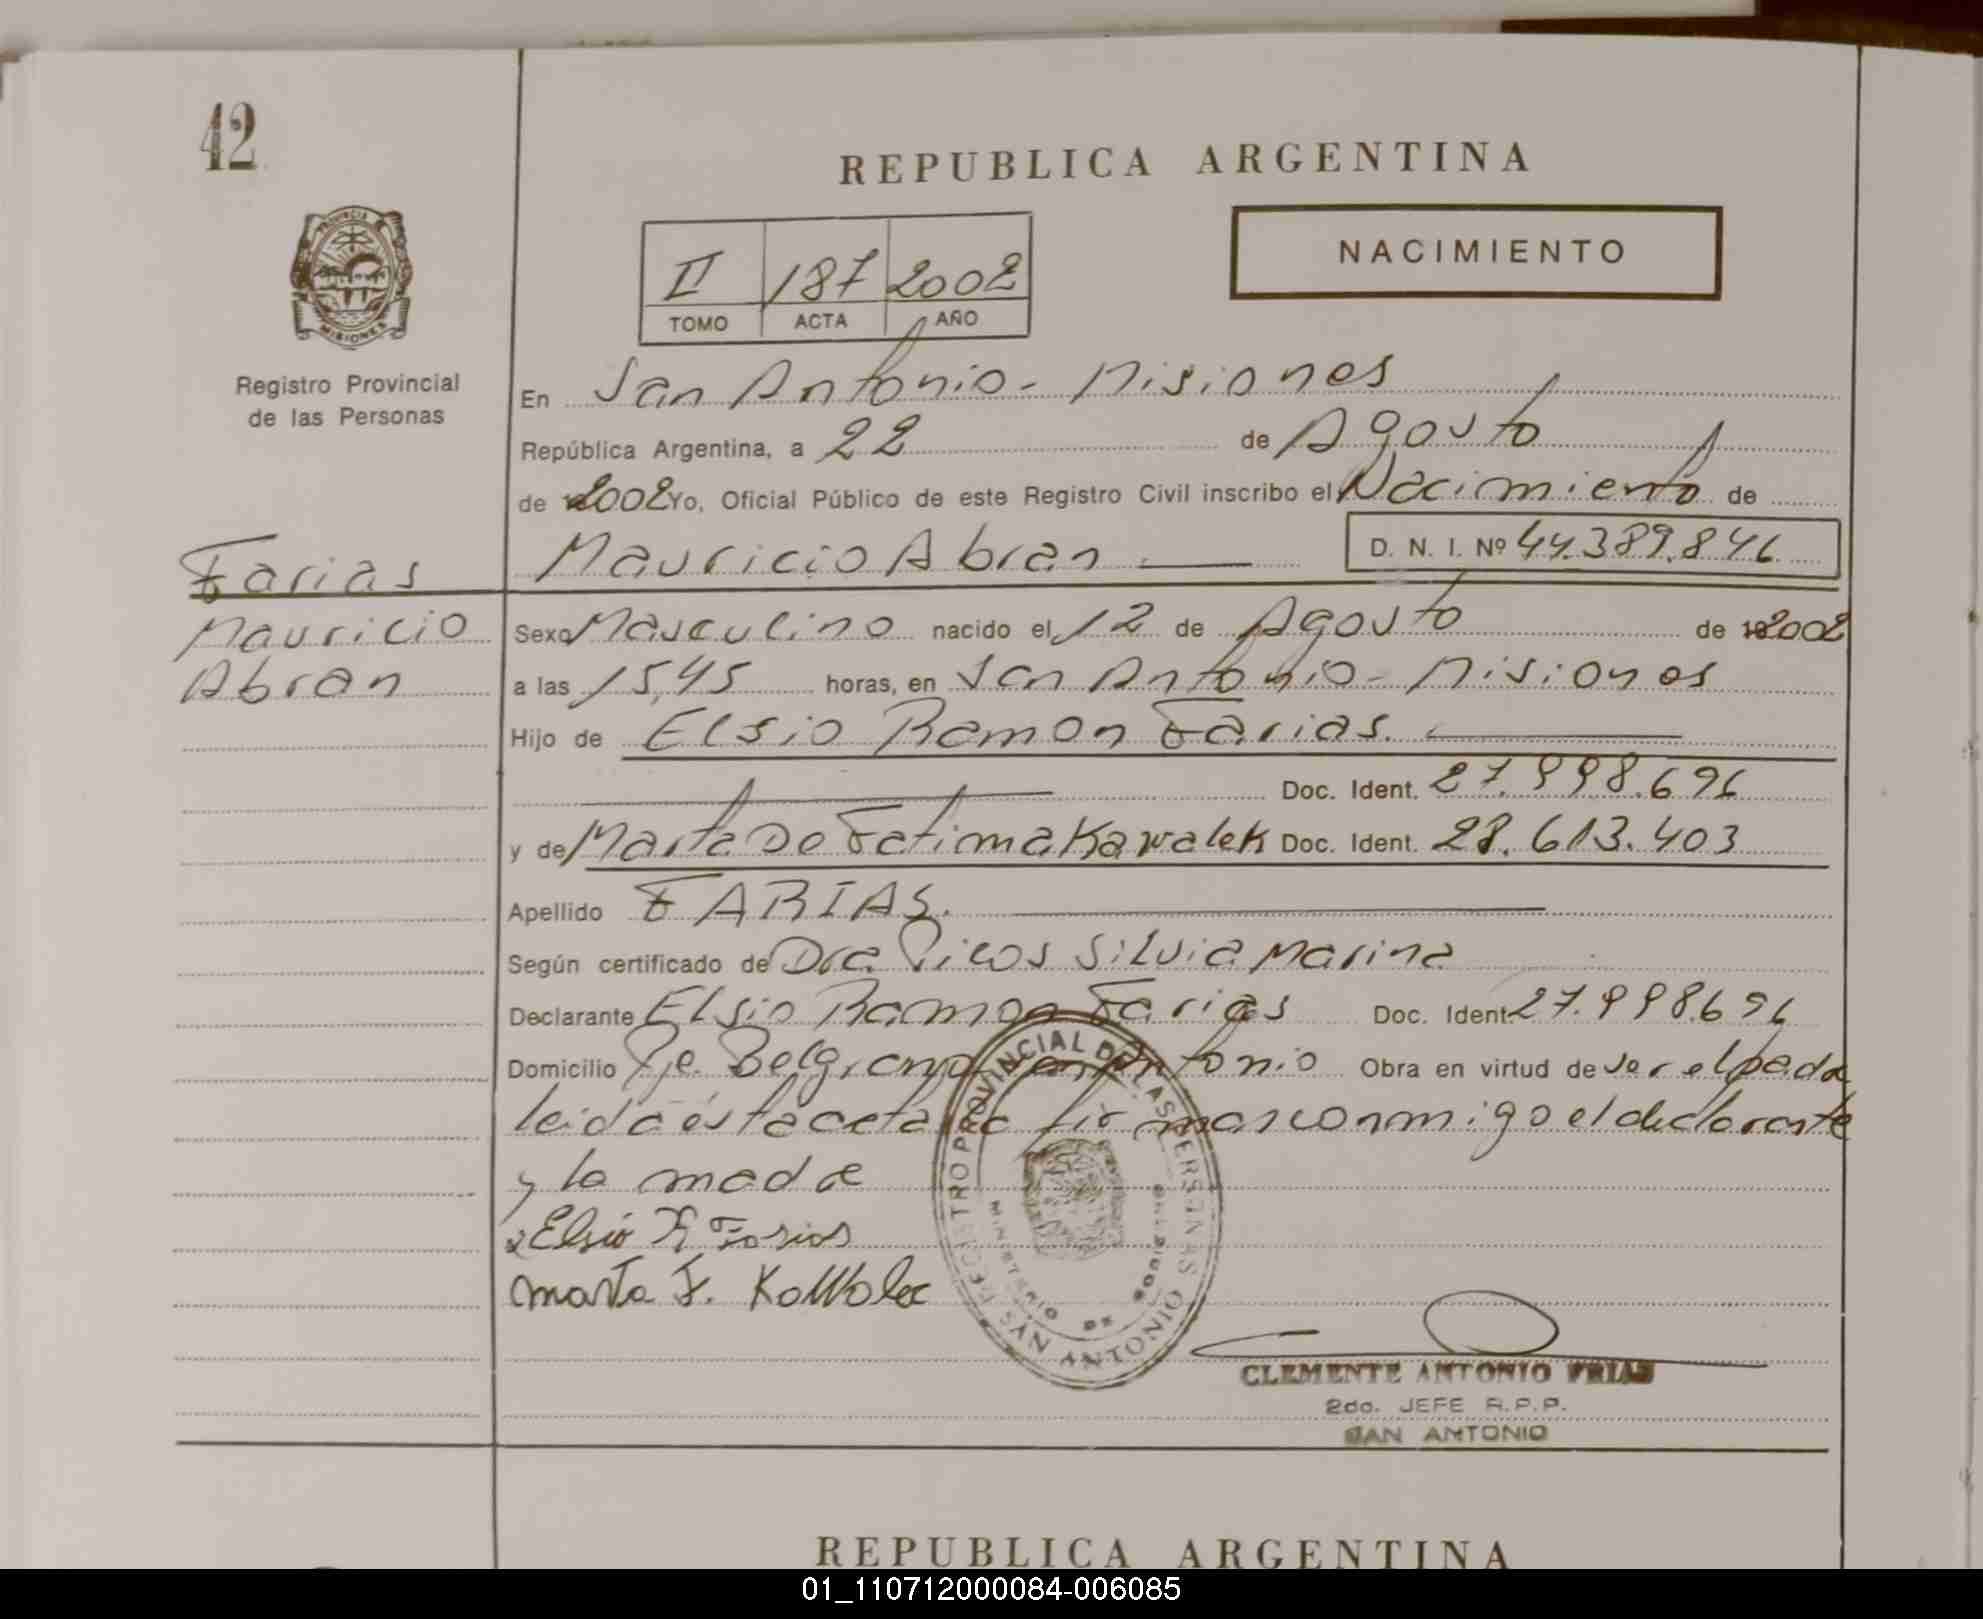 42
REPUBLICA ARGENTINA
PROVINCIA
MISIONES
Registro Provincial
de las Personas
II 187 2002
TOMO ACTA AÑO
NACIMIENTO
En San Antonio - Misiones
República Argentina, a 22 de Agosto
de 2002 Yo, Oficial Público de este Registro Civil inscribo el Nacimiento de
Mauricio Abran D. N. I. Nº 44.389.846
Farias
Mauricio
Abran
Sexo Masculino nacido el 12 de Agosto de 2002
a las 15,45 horas, en San Antonio - Misiones
Hijo de Elsio Ramon Farias.
Doc. Ident. 27.998.696
y de Marta De Fatima Kawalek Doc. Ident. 28.613.403
Apellido FARIAS.
Según certificado de Dra Picos Silvia Marina
Declarante Elsio Ramon Farias Doc. Ident. 27.998.696
Domicilio Pje. Belgrano San Antonio Obra en virtud de ser el padre
leida esta acta la firman conmigo el declarante
y la madre
Elsio R Farias
Marta F. Kowolec
REGISTRO PROVINCIAL DE LAS PERSONAS
MINISTERIO DE GOBIERNO
SAN ANTONIO
CLEMENTE ANTONIO FRIAS
2do. JEFE R.P.P.
SAN ANTONIO
REPUBLICA ARGENTINA
01_110712000084-006085